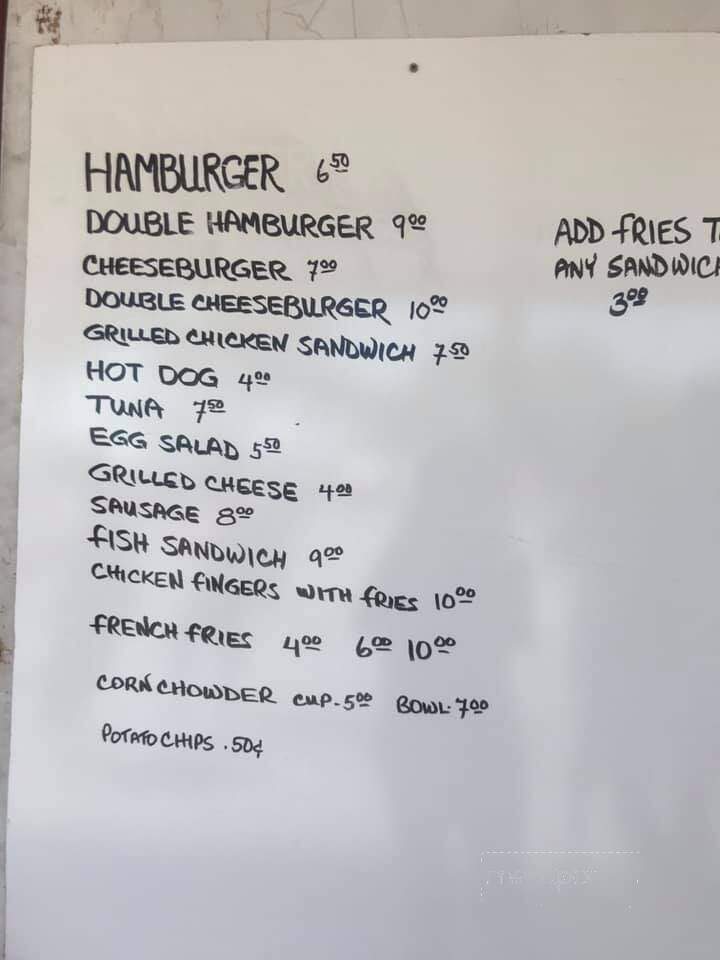 HAMBURGER 6 50
DOUBLE HAMBURGER 9 00
CHEESEBURGER 7 00
DOUBLE CHEESEBURGER 10 00
GRILLED CHICKEN SANDWICH 7 50
HOT DOG 4 00
TUNA 7 50
EGG SALAD 5 50
GRILLED CHEESE 4 00
SAUSAGE 8 00
FISH SANDWICH 9 00
CHICKEN FINGERS WITH FRIES 10 00
FRENCH FRIES 4 00 6 00 10 00
CORN CHOWDER CUP - 5 00 BOWL - 7 00
POTATO CHIPS .50¢
ADD FRIES
ANY SANDWICH
3 00